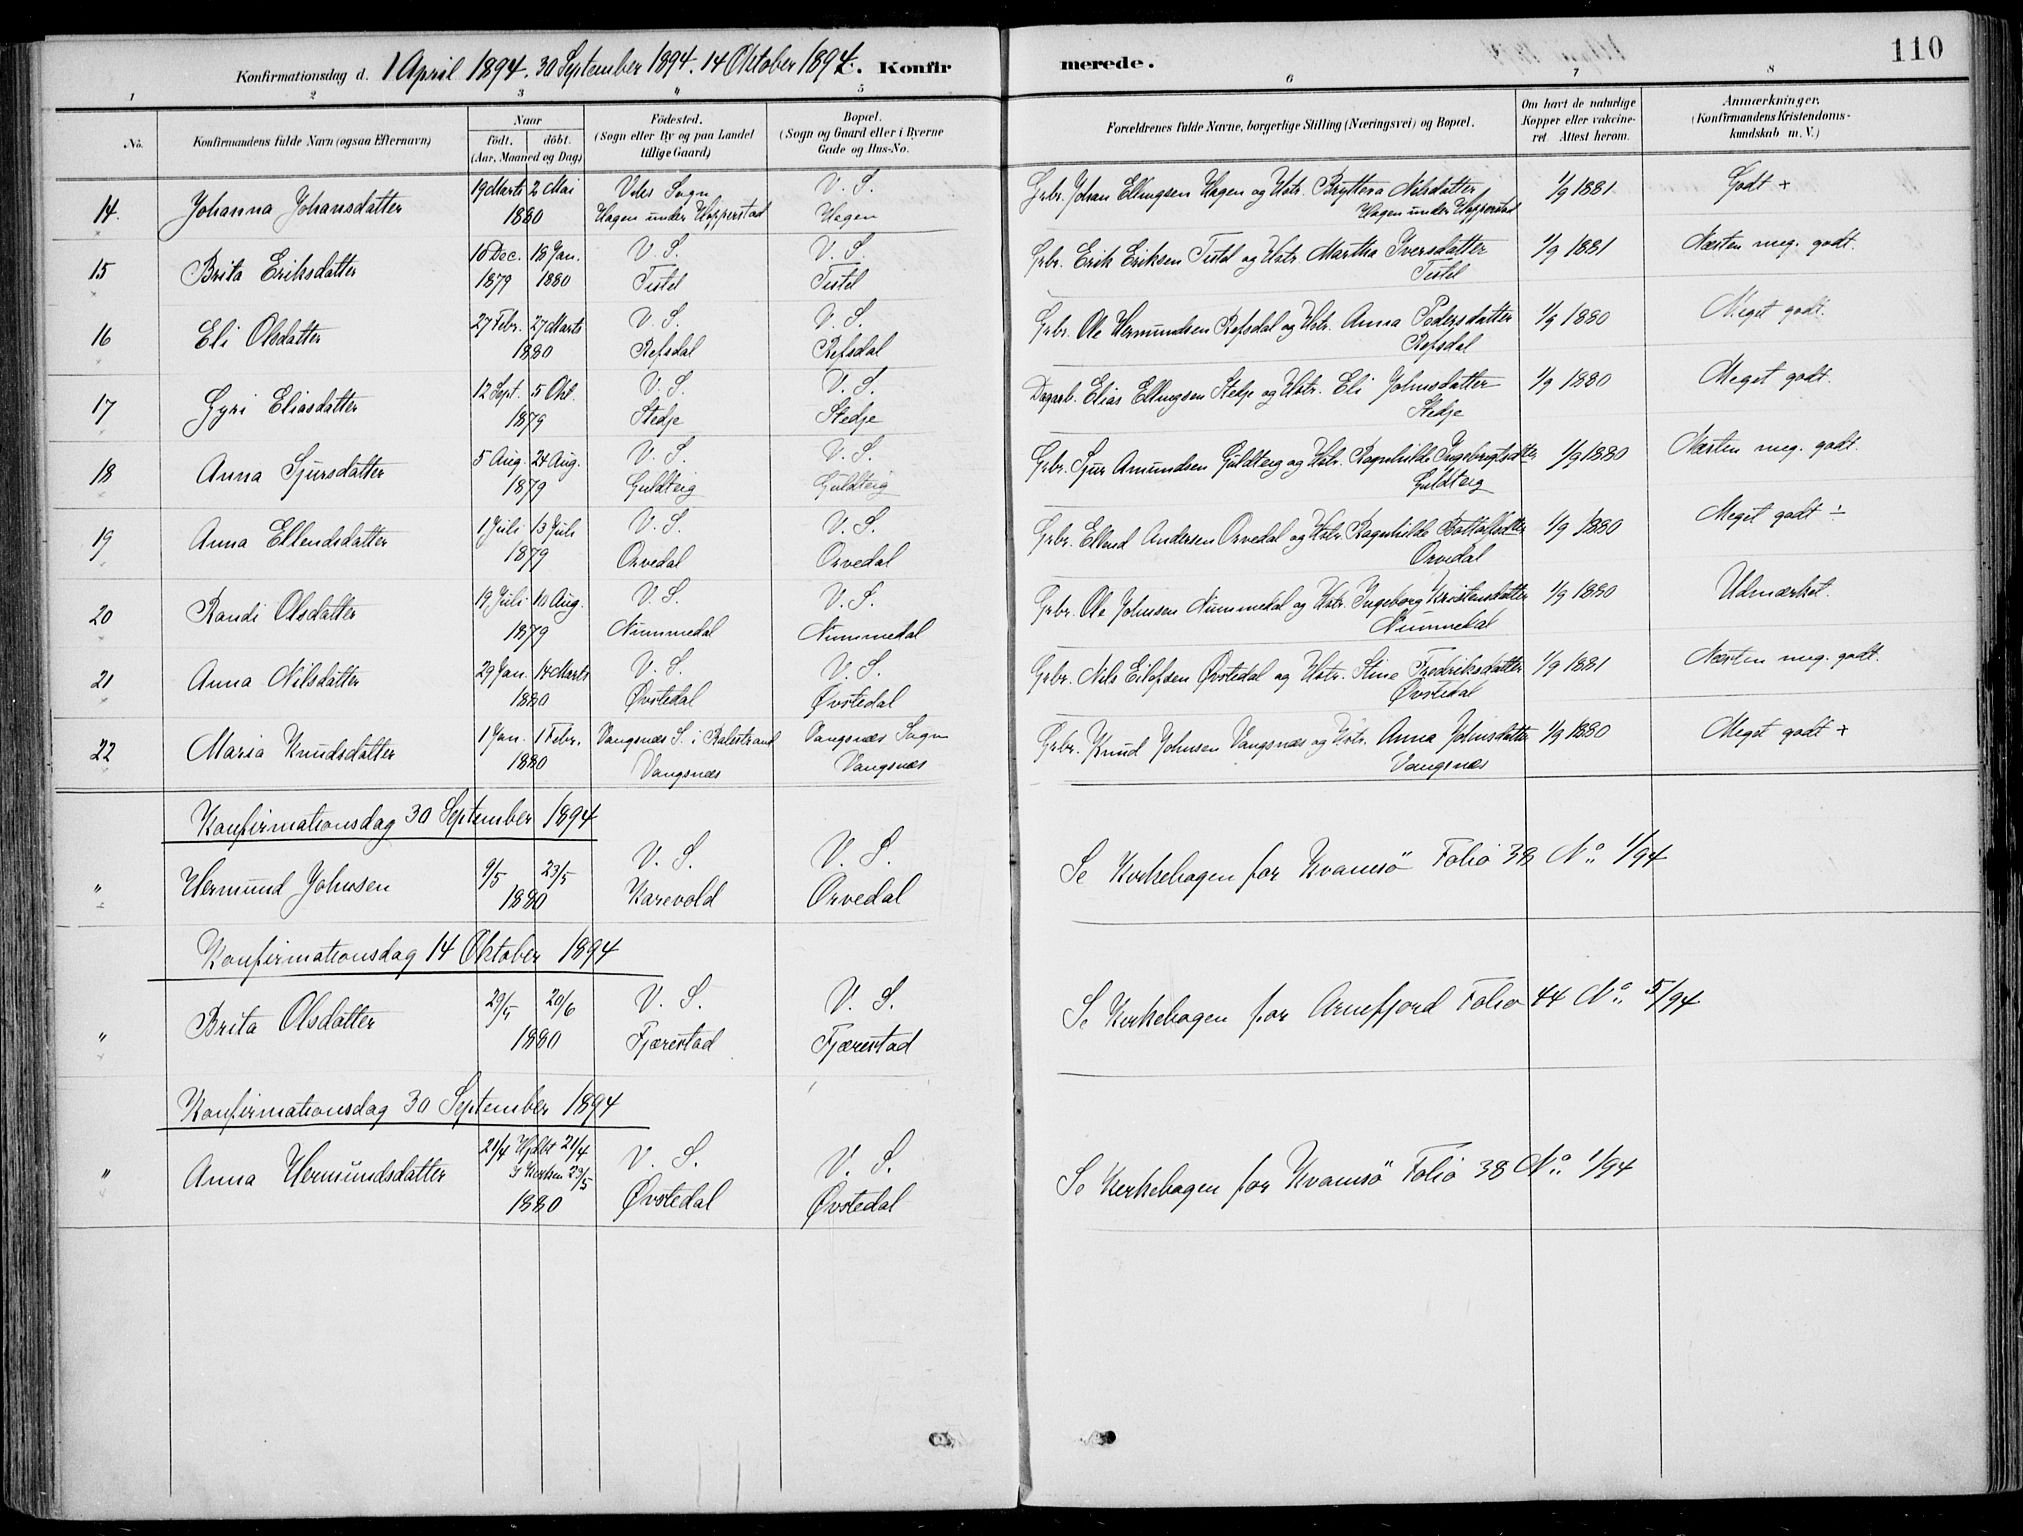 110
Konfirmationsdag d. 1 April 1894. 30 September 1894. 14 Oktober 1894. C. Konfirmerede.
1 2 3 4 5 6 7 8
No. Konfirmandens fulde Navn (ogsaa Efternavn) Naar født. døbt. (Aar, Maaned og Dag) Fødested. (Sogn eller By og paa Landet tillige Gaard) Bopæl. (Sogn og Gaard eller i Byerne Gade og Hus-No. Forældrenes fulde Navne, borgerlige Stilling (Næringsvei) og Bopæl. Om havt de naturlige Kopper eller vakcineret. Attest herom. Anmærkninger. (Konfirmandens Kristendomskundskab m. V.)
14. Johanna Johansdatter 19 Marts 2 Mai 1880 Viks Sogn Hagen under Hopperstad V. S. Hagen Grbr. Johan Ellingsen Hagen og Hstr. Bryttera Nilsdatter Hagen under Hopperstad 1/9 1881 Godt +
15 Brita Eriksdatter 10 Dec. 1879 18 Jan. 1880 V. S. Tistel V. S. Tistel Grbr. Erik Eriksen Tistel og Hstr. Martha Iversdatter Tistel 1/9 1881 Næsten meg. godt.
16 Eli Olsdatter 27 Febr. 27 Marts 1880 V. S. Refsdal V. S. Refsdal Grbr. Ole Hermundsen Refsdal og Hstr. Anna Pedersdatter Refsdal 1/9 1880 Meget godt.
17 Gyri Eliasdatter 12 Sept. 5 Okt. 1879 V. S. Stedje V. S. Stedje Dagarb. Elias Ellingsen Stedje og Hstr. Eli Johnsdatter Stedje 1/9 1880 Meget godt.
18 Anna Sjursdatter 5 Aug. 24 Aug. 1879 V. S. Guldteig V. S. Guldteig Grbr. Sjur Amundsen Guldteig og Hstr. Ragnhilde Ingebrigtsdtter Guldteig 1/9 1880 Næsten meg. godt.
19 Anna Ellendsdatter 1 Juli 13 Juli 1879 V. S. Orvedal V. S. Orvedal Grbr. Ellend Andersen Orvedal og Hstr. Ragnhilde Bottolfsdtter Orvedal 1/9 1880 Meget godt ÷
20 Randi Olsdatter 19 Juli 10 Aug. 1879 V. S. Nummedal V. S. Nummedal Grbr. Ole Johnsen Nummedal og Hstr. Ingeborg Kristensdatter Nummedal 1/9 1880 Udmærket.
21 Anna Nilsdatter 29 Jan. 14 Marts 1880 V. S. Øvstedal V. S. Øvstedal Grbr. Nils Eilofsen Øvstedal og Hstr. Stine Fredriksdatter Øvstedal 1/9 1881 Næsten meg. godt.
22 Maria Knudsdatter 1 Jan. 1 Febr. 1880 Vangsnæs S. i Balestrand Vangsnæs Vangsnæs Sogn Vangsnæs Grbr. Knud Johnsen Vangsnæs og Hstr. Anna Johnsdatter Vangsnæs 1/9 1880 Meget godt +
Konfirmationsdag 30 September 1894
" Hermund Johnsen 9/5 23/5 1880 V. S. Karevold V. S. Orvedal Se Kirkebogen for Kvamsö Folio 38 No. 1/94
Konfirmationsdag 14 Oktober 1894
" Brita Olsdatter 29/5 20/6 1880 V. S. Fjærestad V. S. Fjærestad Se Kirkebogen for Arnefjord Folio 44 No. 5/94
Konfirmationsdag 30 September 1894
" Anna Hermundsdatter 21/4 Hjdbt 21/4 I Kirken 23/5 1880 V. S. Øvstedal V. S. Øvstedal Se Kirkebogen for Kvamsö Folio 38 No. 1/94